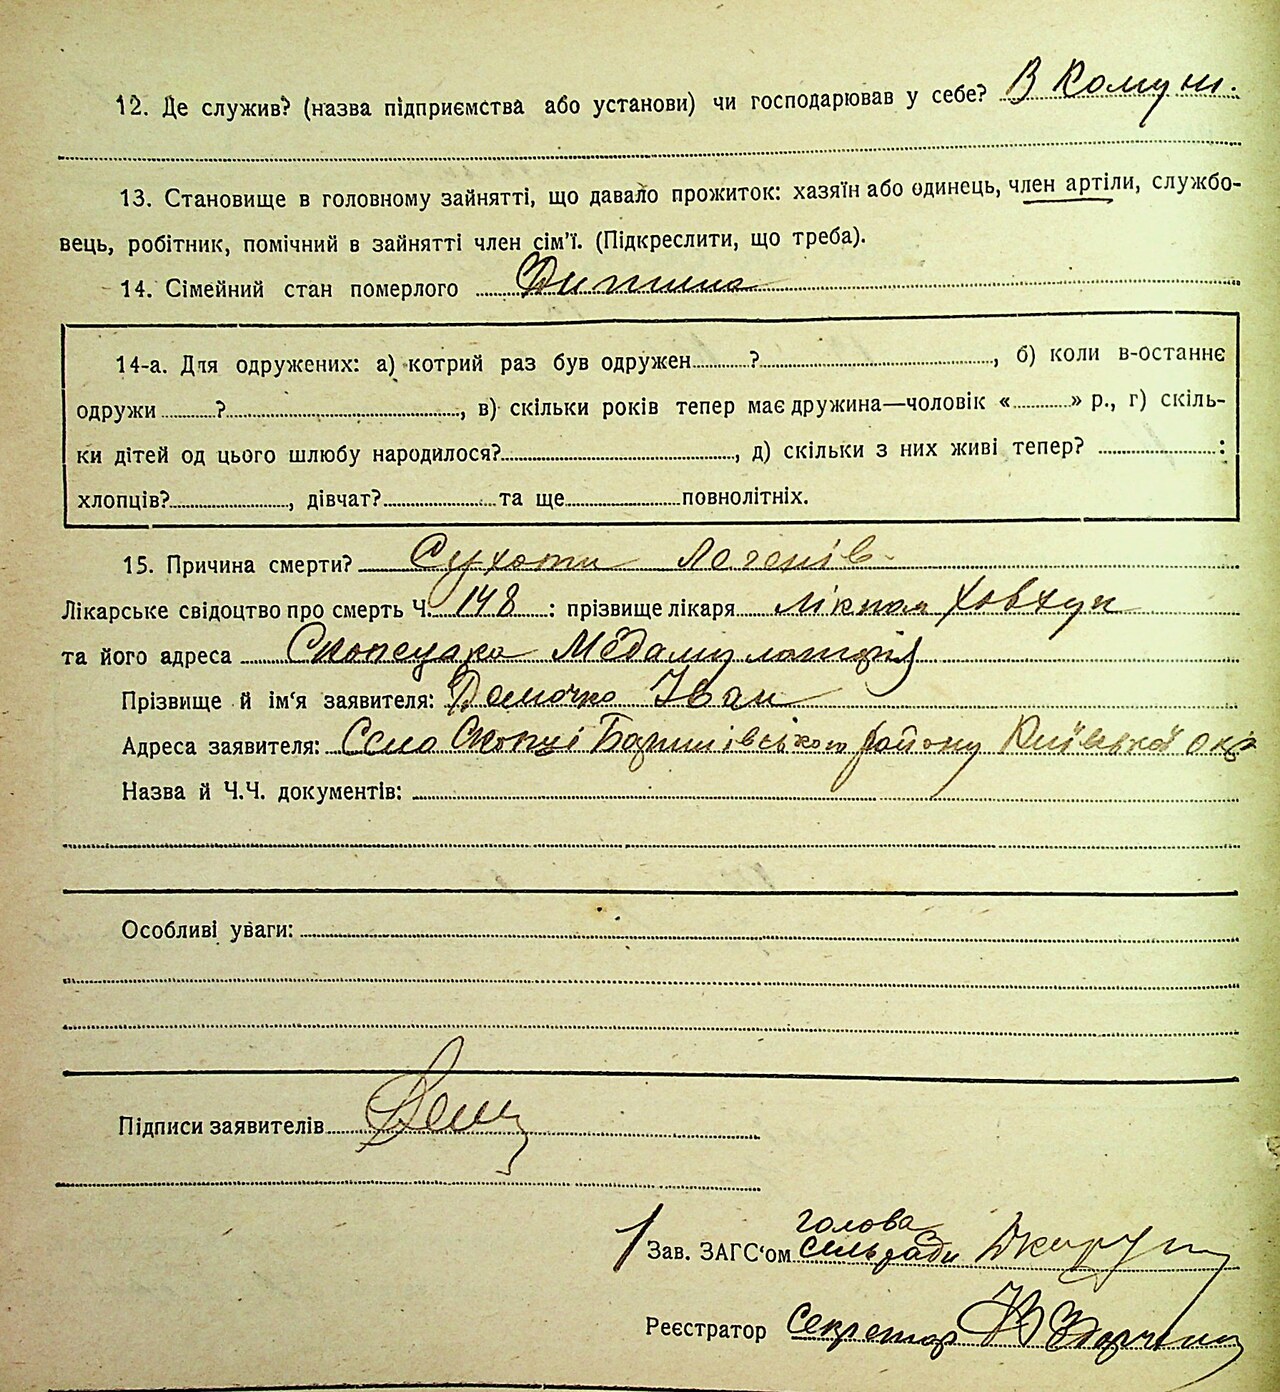 12. Де служив? (назва підприємства або установи) чи господарював у себе? В Комун.
13. Становище в головному зайнятті, що давало прожиток: хазяїн або одинець, член артіли, службо-
вець, робітник, помічний в зайнятті член сім'ї. (Підкреслити, що треба).
14. Сімейний стан померлого Дитина
14-а. Для одружених: а) котрий раз був одружен ?, б) коли в-останнє
одружи ?, в) скільки років тепер має дружина—чоловік « » р., г) скіль-
ки дітей од цього шлюбу народилося?, д) скільки з них живі тепер? :
хлопців?, дівчат? та ще повнолітніх.
15. Причина смерти? Сухоти легенів
Лікарське свідоцтво про смерть Ч. 148 : прізвище лікаря лікпом Ховхун
та його адреса Скопецька Медамулаторія
Прізвище й ім'я заявителя: Іван
Адреса заявителя: Село Скопці Баришівського району Київської окр
Назва й Ч.Ч. документів:
Особливі уваги:
Підписи заявителів
голова
Зав. ЗАГС'ом сельради
Реєстратор Секретар